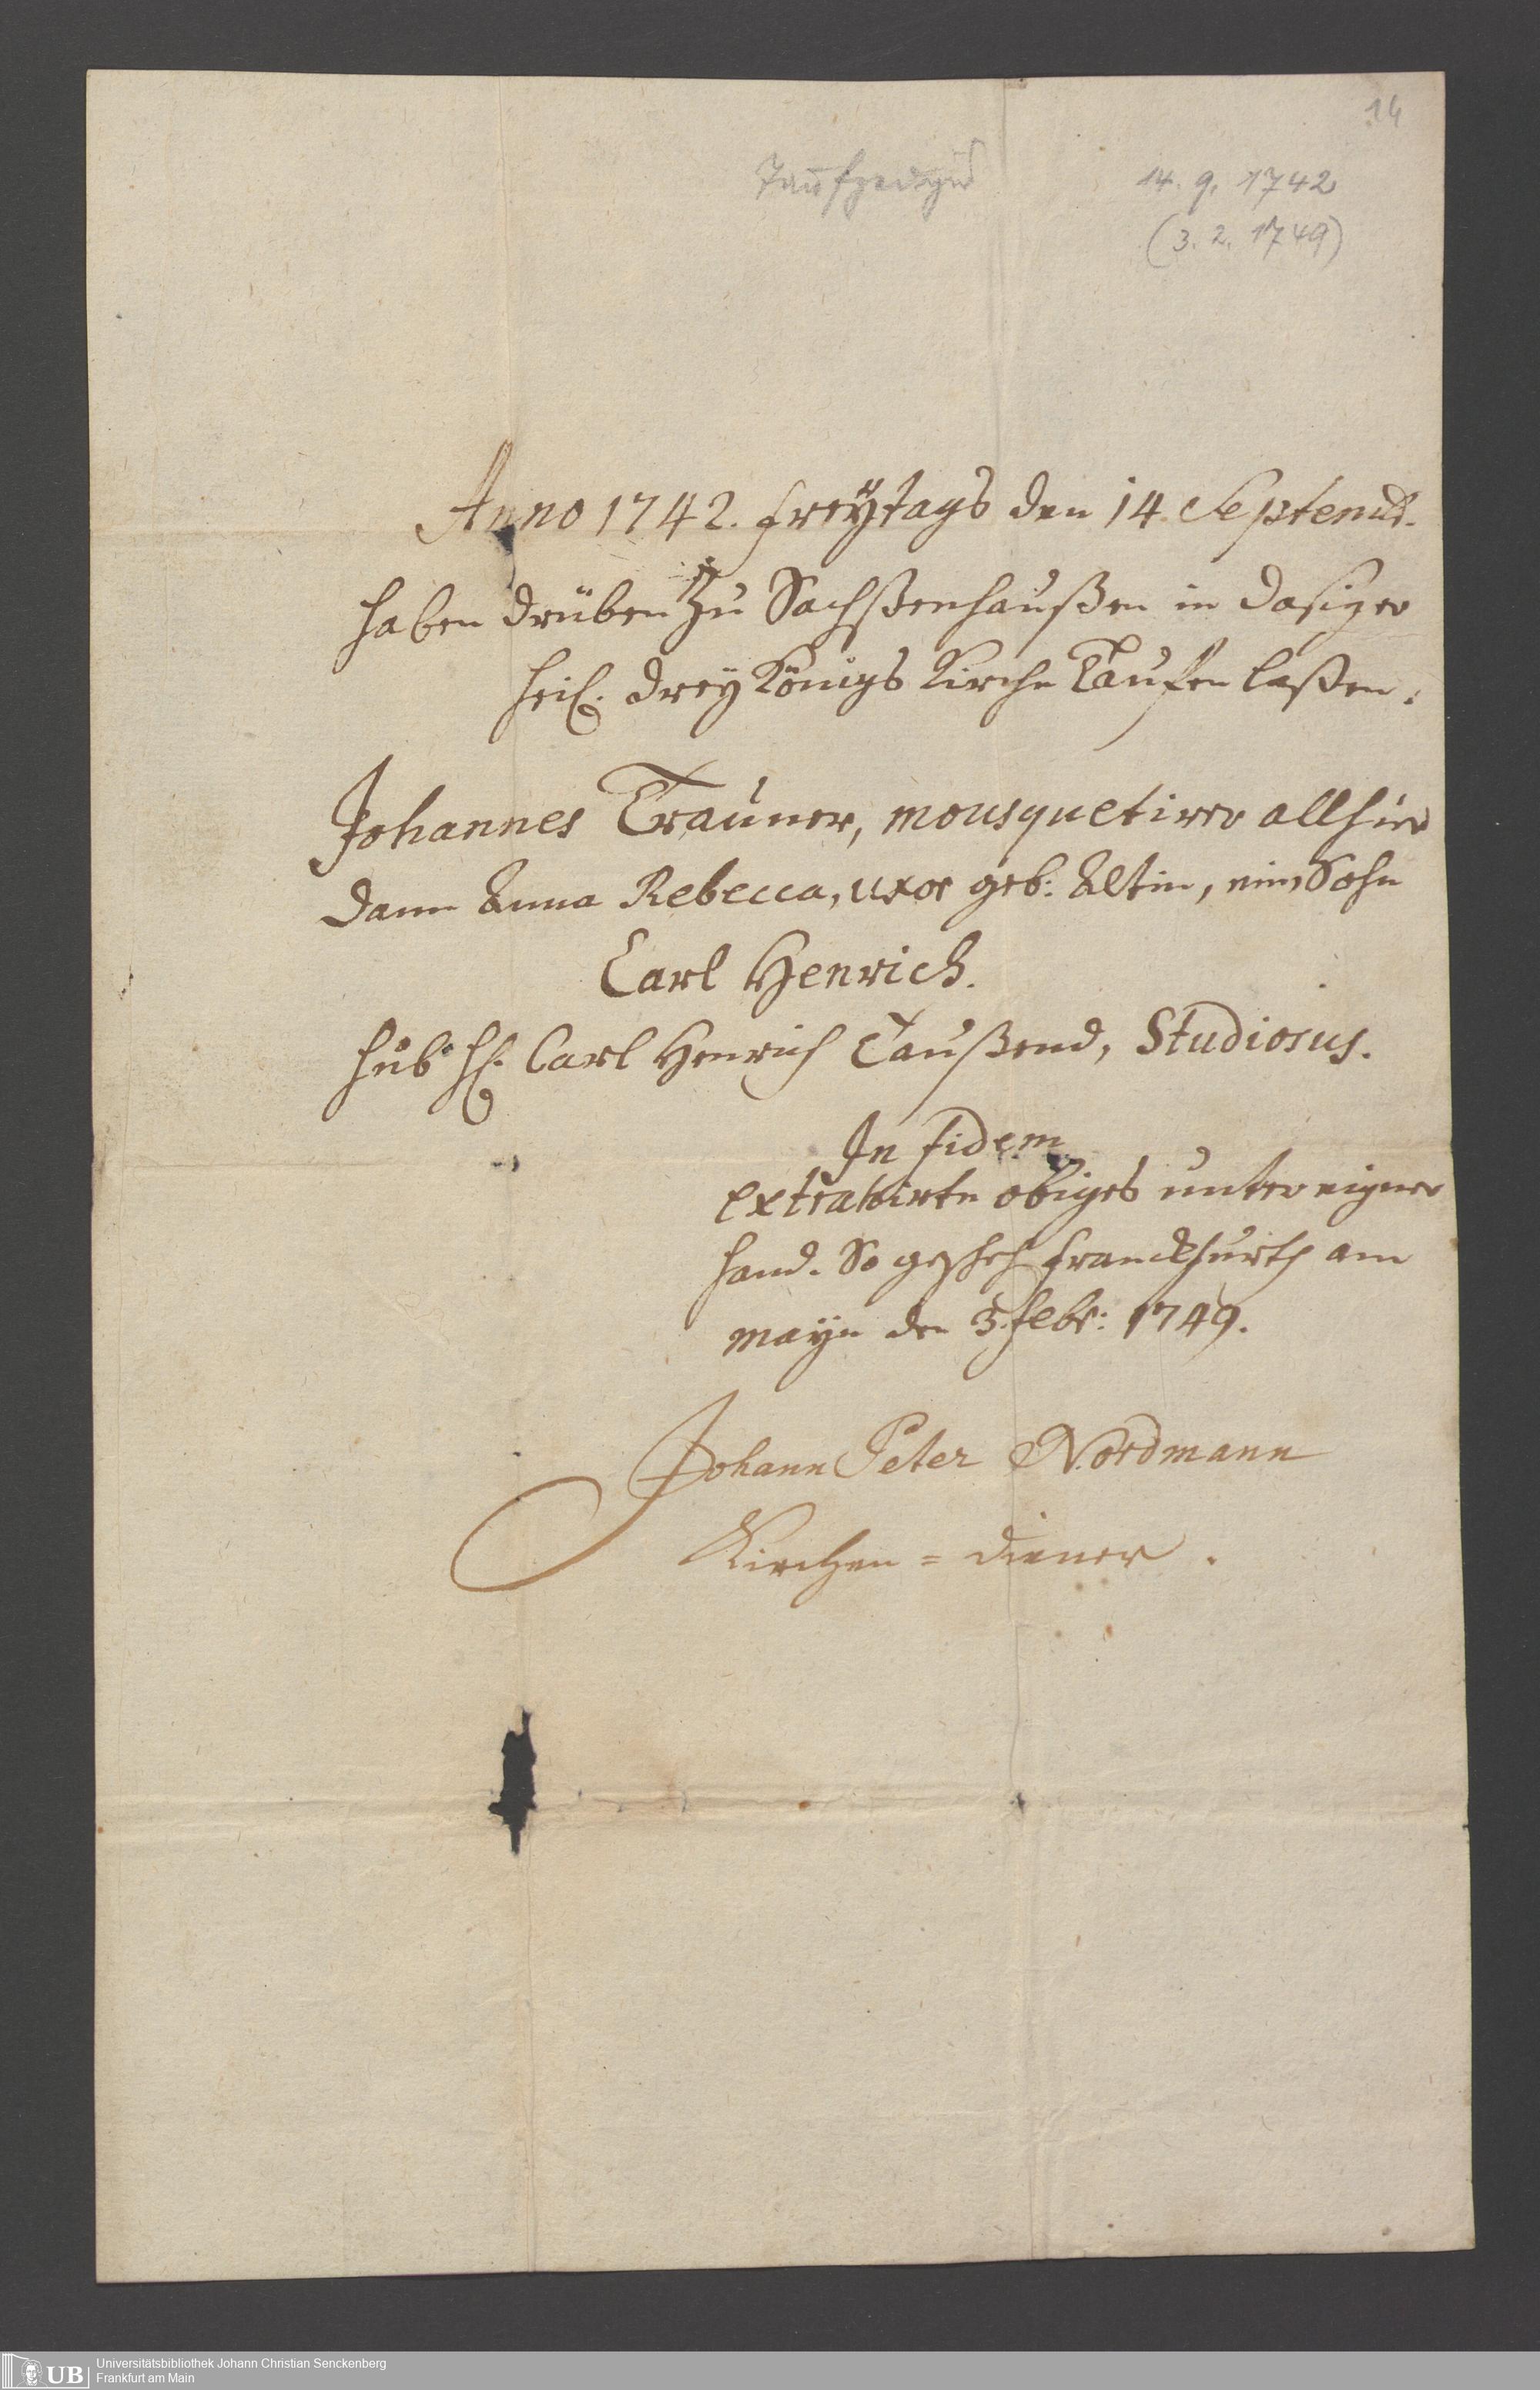 14
Taufzeugn
14. 9. 1742
(3. 2. 1749)
Anno 1742. Freÿtags den 14. Septembr.
haben drüben Zu Sachßenhaußen in dasiger
heil. dreÿ Königs Kirche Taufen laßen:
Johannes Trauner, mousquetirer allhier
dann Anna Rebecca, uxor geb: Altin, einen Sohn
Carl Henrich.
hub H. Carl Henrich Taußend, Studiosus.
In fidem
extrahirte obiges unter eigner
hand. So gescheh Franckfurth am
maÿn den 3. Febr: 1749.
Johann Peter Nordmann
Kirchen = diener.
UB
Universitätsbibliothek Johann Christian Senckenberg
Frankfurt am Main